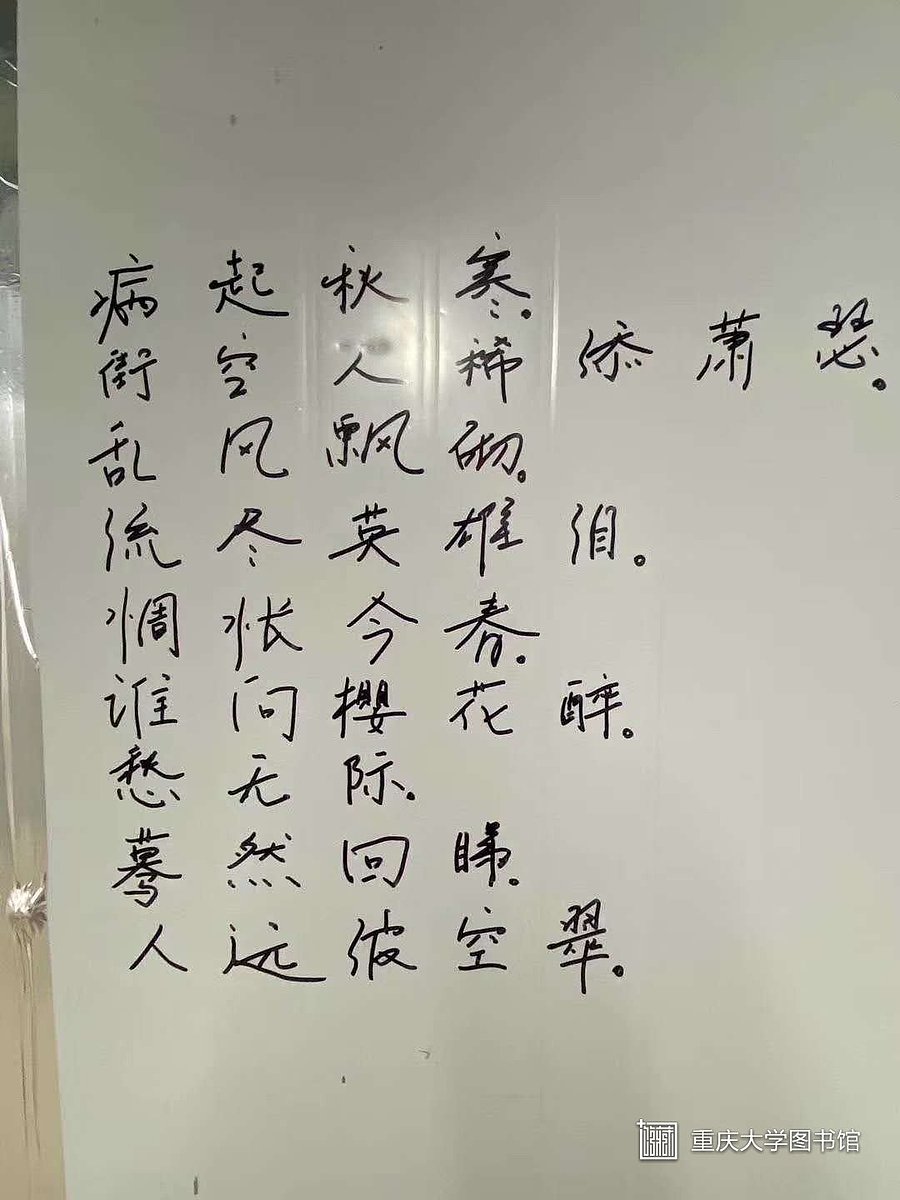 病起秋寒。
街空人稀添萧瑟。
乱风飘砌。
流尽英雄泪。
惆怅今春。
谁问樱花醉。
愁无际。
蓦然回睇。
人远波空翠。
重庆大学图书馆